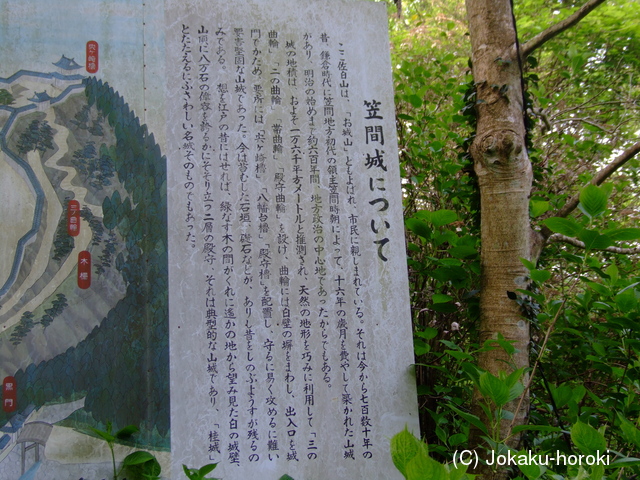 笠間城について
ここ佐白山は、「お城山」ともよばれ、市民に親しまれている。それは今から七百数十年の
昔、鎌倉時代に笠間地方初代の領主笠間時朝によって、十六年の歳月を費やして築かれた山城
があり、明治の始めまで約六百年間、地方政治の中心地であったからでもある。
城の地積は、およそ一万六千平方メートルと推測され、天然の地形を巧みに利用して「三の
曲輪」「二の曲輪」「帯曲輪」「殿守曲輪」を設け、曲輪には白壁の塀をまわし、出入口を城
門でかため、要所には「宍ケ崎櫓」「八幡台櫓」「殿守櫓」を配置し、守るに易く攻めるに難い
要害堅固な山城であった。今は苔むした石垣、礎石などが、ありし昔をしのぶようすが残るの
みである。想を江戸の昔にはせれば、緑なす木の間がくれに遙かの地から望み見た白の城壁、
山頂に八万石の偉容を誇るかにそそり立つ二層の殿守、それは典型的な山城であり、「桂城」
とたたえるにふさわしい名城そのものでもあった。
宍ヶ崎櫓
三ノ曲輪
櫓
木
黒門
(C) Jokaku-horoki